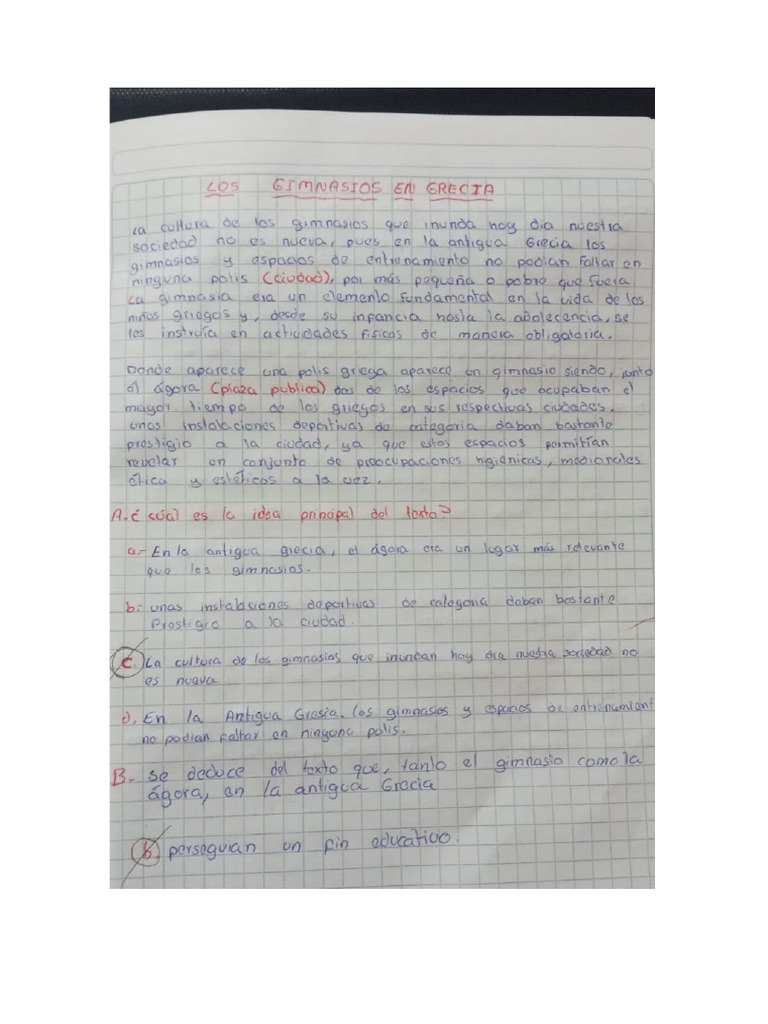 LOS GIMNASIOS EN GRECIA
La cultura de los gimnasios que inunda hoy dia nuestra
sociedad no es nueva, pues en la antigua Grecia los
gimnasios y espacios de entrenamiento no podian faltar en
ninguna polis (ciudad), por más pequeña o pobre que fuera
La gimnasia era un elemento fundamental en la vida de los
niños griegos y, desde su infancia hasta la adolecencia, se
les instruía en actividades físicas de manera obligatoria.
Donde aparece una polis griega aparece un gimnasio siendo, junto
al ágora (plaza publica) dos de los espacios que ocupaban el
mayor tiempo de los griegos en sus respectivas ciudades.
unas instalaciones deportivas de categoria daban bastante
prestigio a la ciudad, ya que estos espacios permitían
revelar un conjunto de preocupaciones higienicas, medicinales
ética y estéticos a la vez.
A. ¿cúal es la idea principal del texto?
a.- En la antigua grecia, el ágora era un lugar más relevante
que los gimnasios.
b.- unas instalaciones deportivas de categoria daban bastante
Prestigio a la ciudad.
c. La cultura de los gimnasias que inundan hoy dia nuestra sociedad no
es nueva
d. En la Antigua Grasia, los gimnasios y espacios de entrenamient
no podian faltar en ninguna polis.
B.- se deduce del texto que, tanto el gimnasio como la
ágora, en la antigua Grecia
b. perseguian un fin educativo.